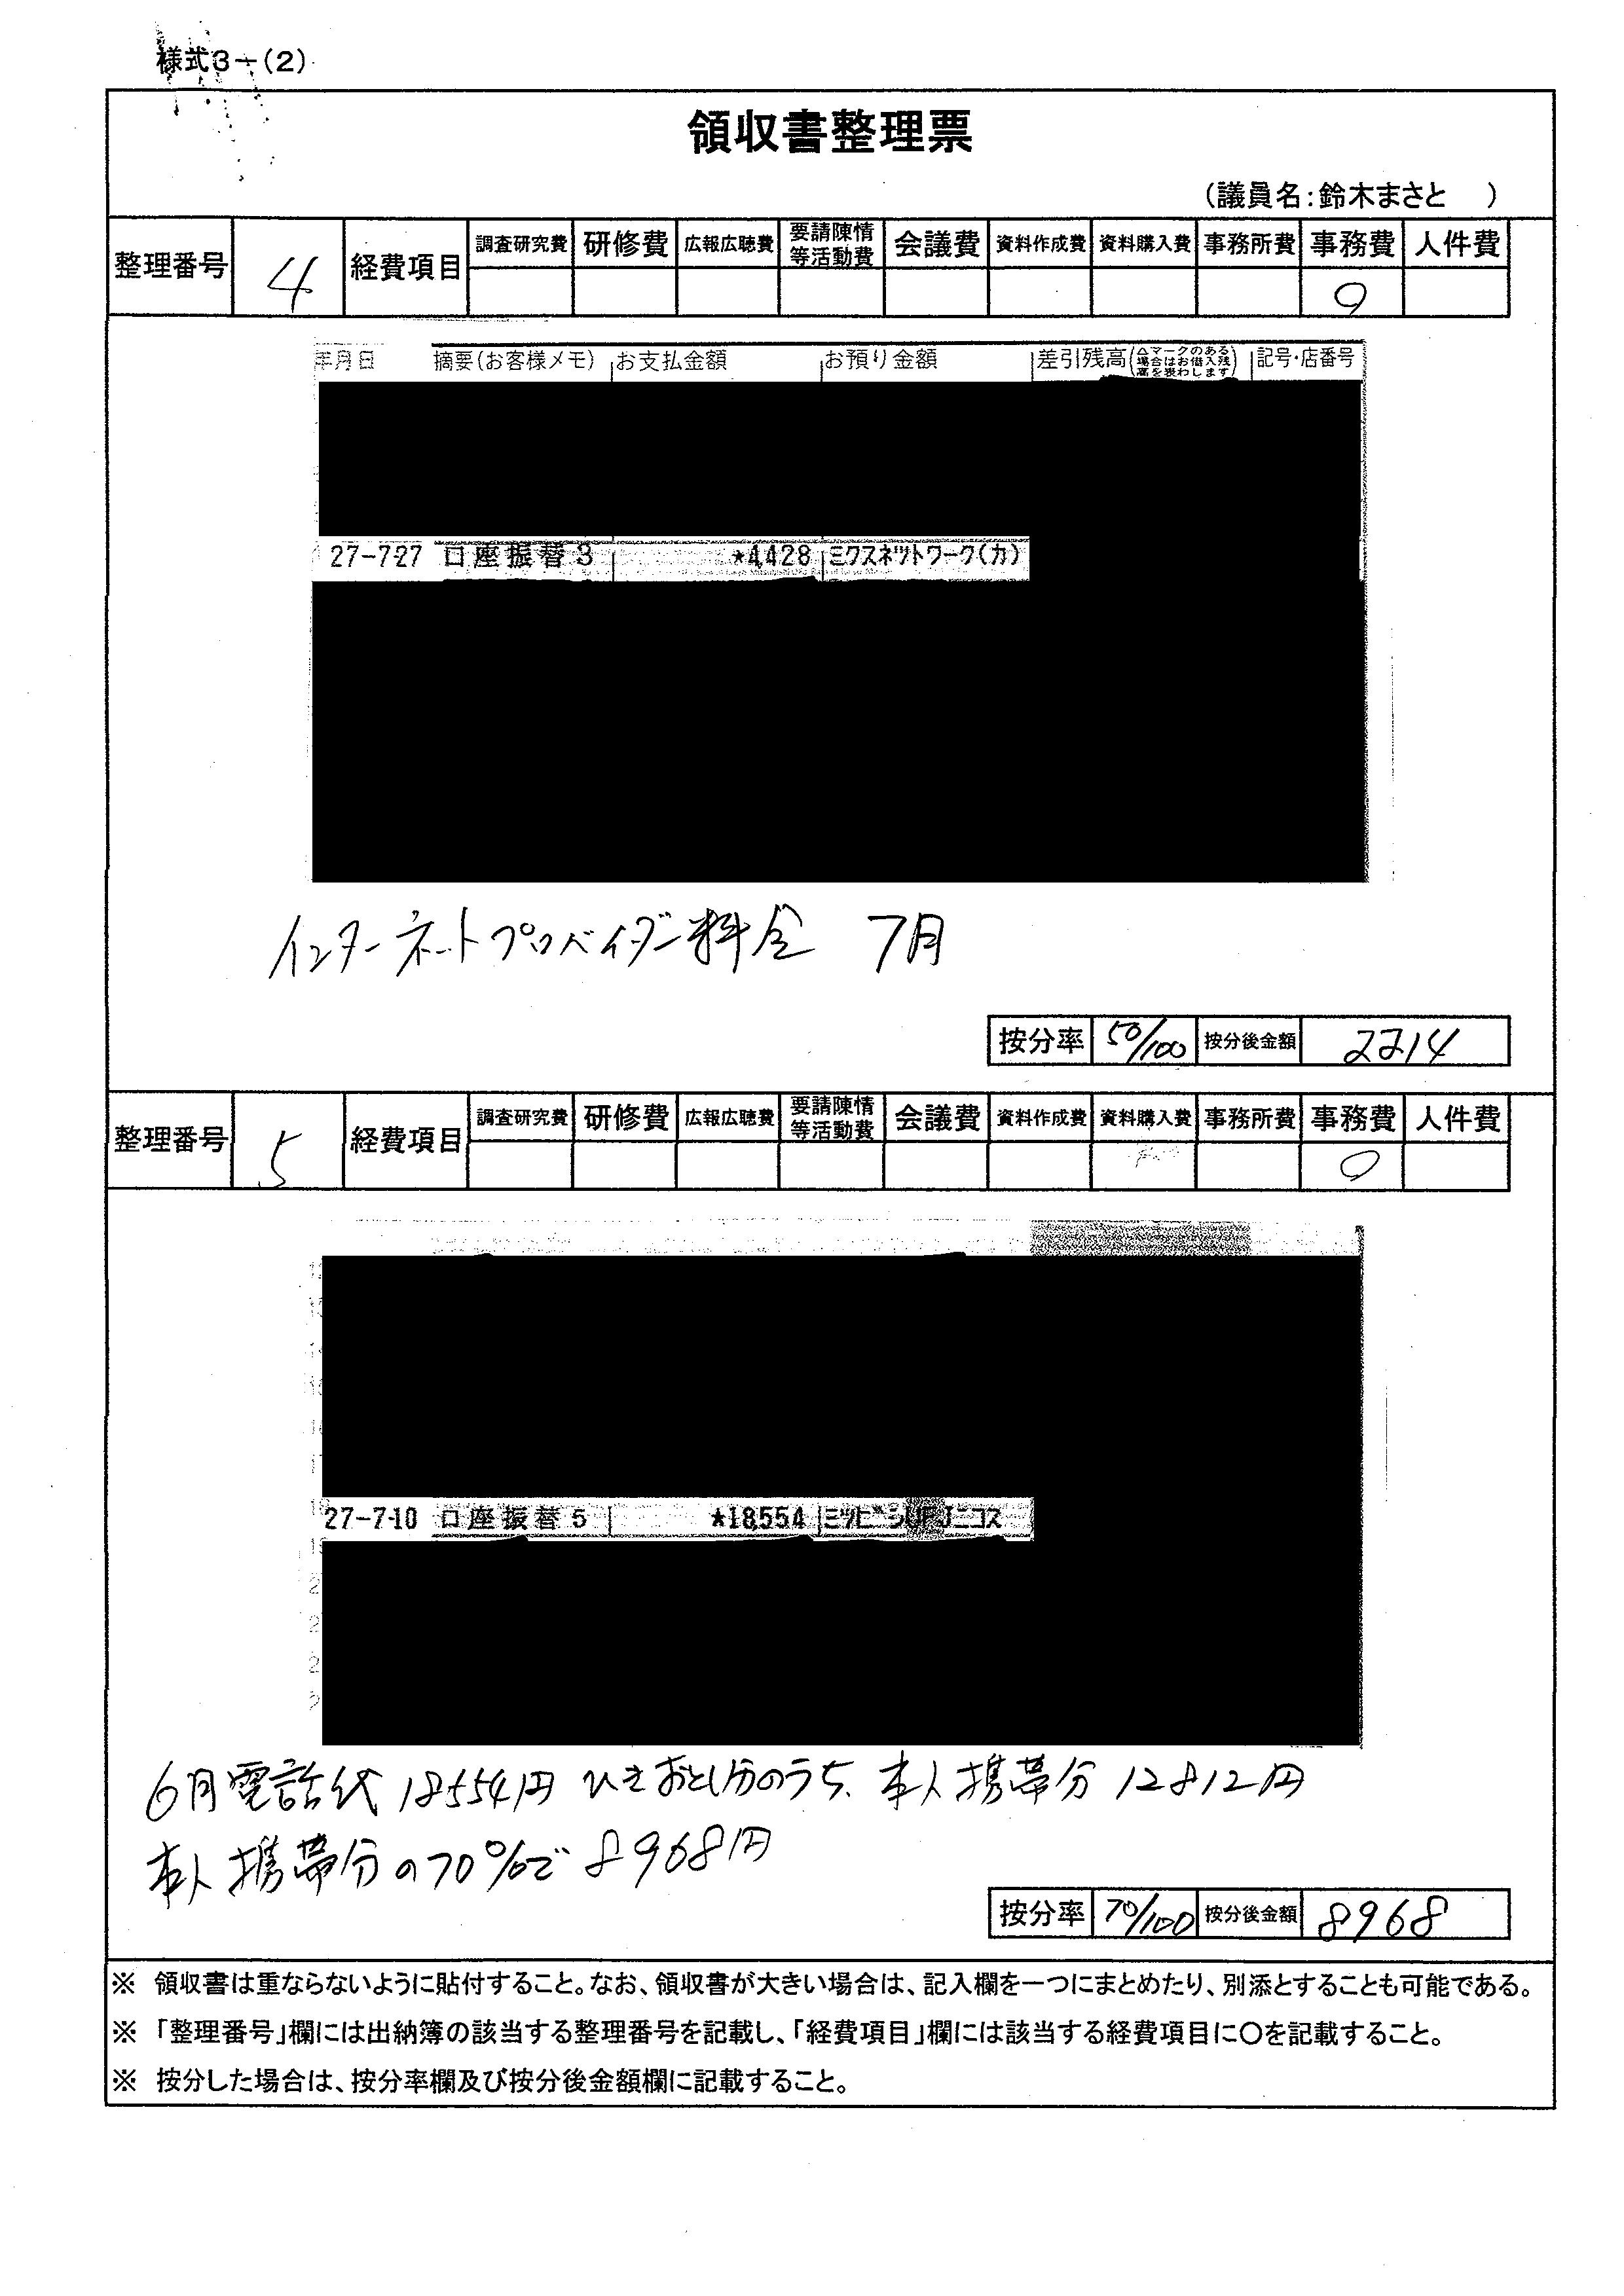 様式3-(2)
領収書整理票
(議員名:鈴木まさと )
整理番号 4 経費項目 調査研究費 研修費 広報広聴費 要請陳情等活動費 会議費 資料作成費 資料購入費 事務所費 事務費 人件費
○
年月日 摘要(お客様メモ) お支払金額 お預り金額 差引残高(△マークのある場合はお借入残高を表わします) 記号・店番号
27-7-27 口座振替3 ★4,428 ミクスネットワーク(カ)
インターネットプロバイダー料金 7月
按分率 50/100 按分後金額 2214
整理番号 5 経費項目 調査研究費 研修費 広報広聴費 要請陳情等活動費 会議費 資料作成費 資料購入費 事務所費 事務費 人件費
○
27-7-10 口座振替5 ★18,554 ミツビシUFJニコス
6月電話代18554円 ひきおとし分のうち、本人携帯分12812円
本人携帯分の70%で 8968円
按分率 70/100 按分後金額 8968
※ 領収書は重ならないように貼付すること。なお、領収書が大きい場合は、記入欄を一つにまとめたり、別添とすることも可能である。
※ 「整理番号」欄には出納簿の該当する整理番号を記載し、「経費項目」欄には該当する経費項目に○を記載すること。
※ 按分した場合は、按分率欄及び按分後金額欄に記載すること。